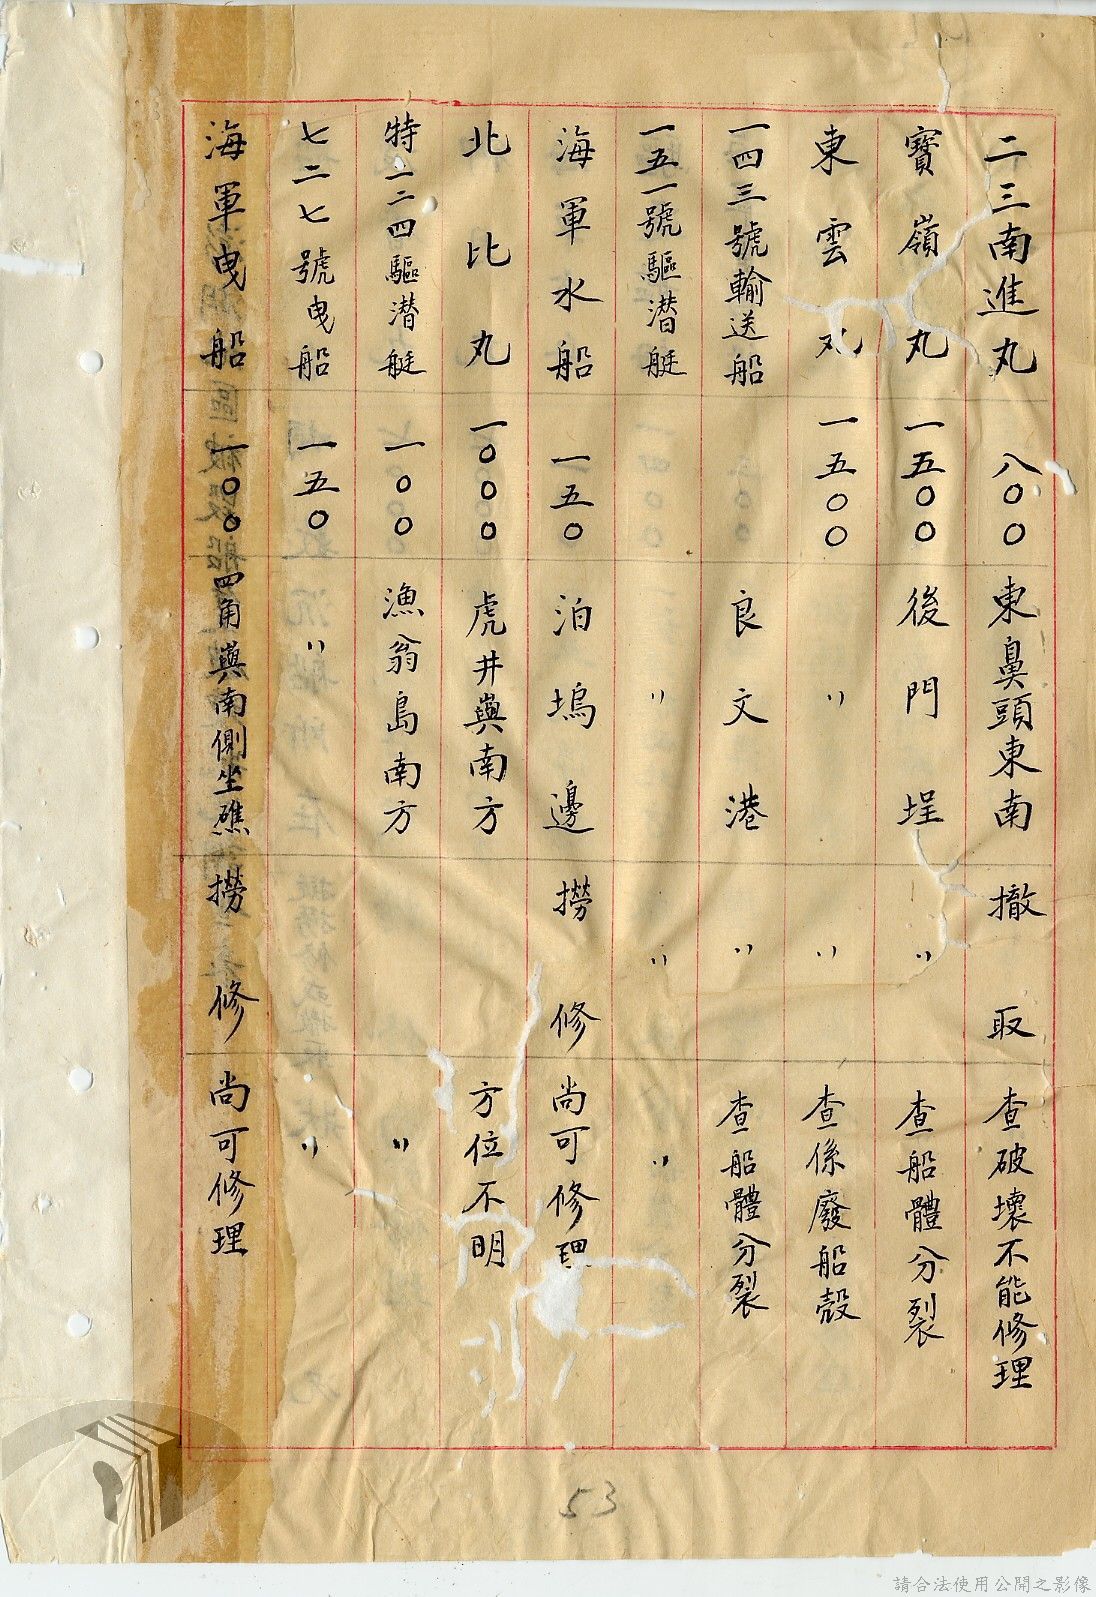 二三南進丸 八〇〇 東鼻頭東南 撤取 查破壞不能修理
寶嶺丸 一五〇〇 後門埕 〃 查船體分裂
東雲丸 一五〇〇 〃 〃 查係廢船殼
一四三號輸送船 良文港 〃 查船體分裂
一五一號驅潛艇 〃 〃 〃
海軍水船 一五〇 泊塢邊 撈修 尚可修理
北比丸 一〇〇〇 虎井嶼南方 方位不明
特一二四驅潛艇 一〇〇 漁翁島南方 〃
七二七號曳船 一五〇 〃 〃
海軍曳船 一〇〇 四角嶼南側坐礁 撈修 尚可修理
53
請合法使用公開之影像